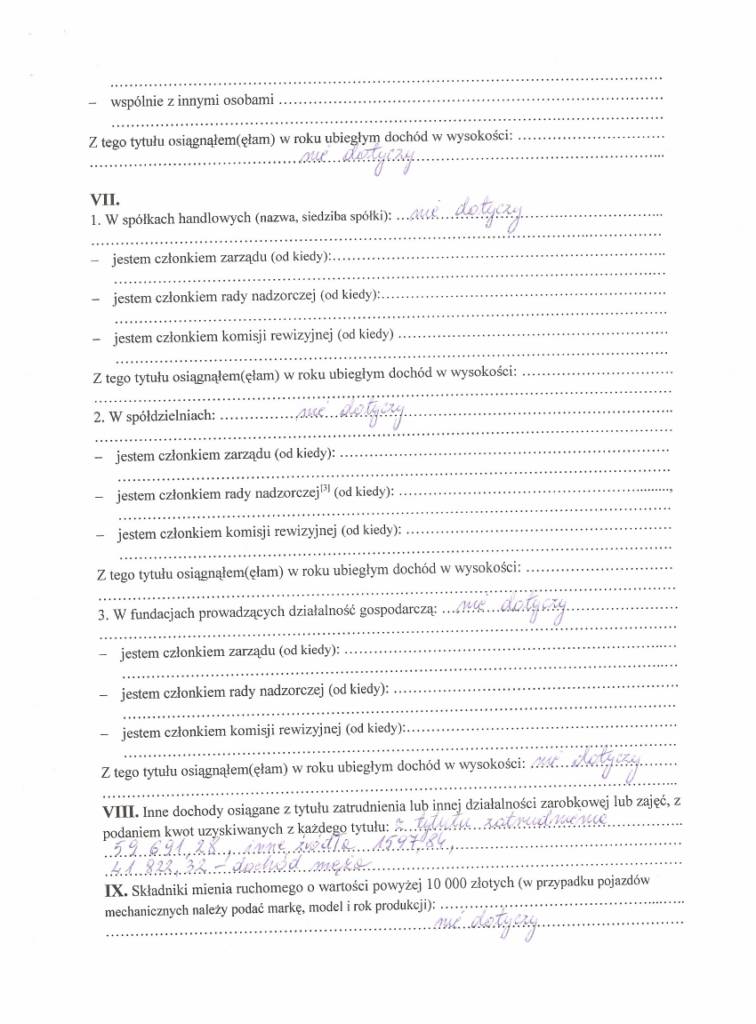 ................................................................
– wspólnie z innymi osobami ................................................................
................................................................
Z tego tytułu osiągnąłem(ęłam) w roku ubiegłym dochód w wysokości: ................................
nie dotyczy
VII.
1. W spółkach handlowych (nazwa, siedziba spółki): ...nie dotyczy................................
................................................................
– jestem członkiem zarządu (od kiedy):................................
................................................................
– jestem członkiem rady nadzorczej (od kiedy):................................
................................................................
– jestem członkiem komisji rewizyjnej (od kiedy) ................................
................................................................
Z tego tytułu osiągnąłem(ęłam) w roku ubiegłym dochód w wysokości: ................................
................................................................
2. W spółdzielniach: ................nie dotyczy................................
................................................................
– jestem członkiem zarządu (od kiedy): ................................
................................................................
– jestem członkiem rady nadzorczej[3] (od kiedy): ................................,
................................................................
– jestem członkiem komisji rewizyjnej (od kiedy): ................................
................................................................
Z tego tytułu osiągnąłem(ęłam) w roku ubiegłym dochód w wysokości: ................................
................................................................
3. W fundacjach prowadzących działalność gospodarczą: ...nie dotyczy................
................................................................
– jestem członkiem zarządu (od kiedy): ................................
................................................................
– jestem członkiem rady nadzorczej (od kiedy): ................................
................................................................
– jestem członkiem komisji rewizyjnej (od kiedy):................................
................................................................
Z tego tytułu osiągnąłem(ęłam) w roku ubiegłym dochód w wysokości: nie dotyczy........
................................................................
VIII. Inne dochody osiągane z tytułu zatrudnienia lub innej działalności zarobkowej lub zajęć, z
podaniem kwot uzyskiwanych z każdego tytułu: z tytułu zatrudnienia
59 691,28, inne źródła 1547,84,
41 822,32 – dochód męża
IX. Składniki mienia ruchomego o wartości powyżej 10 000 złotych (w przypadku pojazdów
mechanicznych należy podać markę, model i rok produkcji): ................................
nie dotyczy